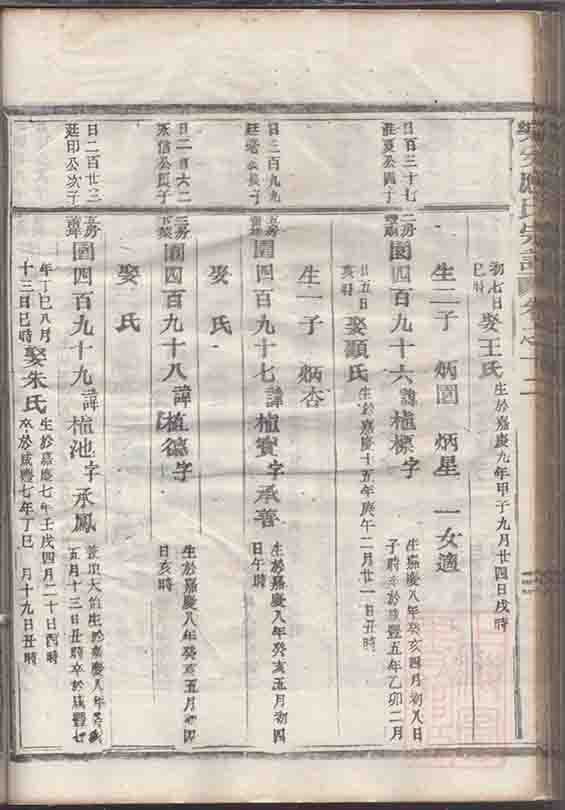 應氏宗譜 卷之十二
初七日巳時 娶王氏 生於嘉慶九年甲子九月廿四日戌時
生二子 炳園 炳星 一女適
日百三十七 公 子
二房 園四百九十六 諱植 字 生於嘉慶八年癸亥四月初八日子時卒於咸豐五年乙卯二月
廿五日亥時 娶顧氏 生於嘉慶十五年庚午二月廿一日丑時
生一子 炳杏
日三百九九 公 子
園四百九十七 諱植寶 字承善 生於嘉慶八年癸亥五月初四日午時
娶 氏
日二百六二 永信公 子
三房 園四百九十八 諱植德 字 生於嘉慶八年癸亥五月初四日亥時
娶 氏
日二百廿三 廷印公次子
房 園四百九十九 諱植池 字承鳳 生於嘉慶八年癸亥五月十三日丑時卒於咸豐七
年丁巳八月十三日巳時 娶朱氏 生於嘉慶七年壬戌四月二十日酉時卒於咸豐七年丁巳 月十九日丑時